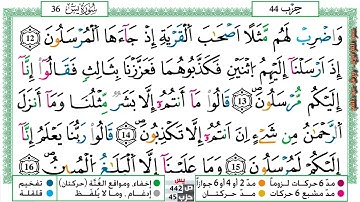 حزب 44
سورة يس
36
وَاضْرِبْ لَهُم مَّثَلًا أَصْحَابَ الْقَرْيَةِ إِذْ جَاءَهَا الْمُرْسَلُونَ 12
إِذْ أَرْسَلْنَا إِلَيْهِمُ اثْنَيْنِ فَكَذَّبُوهُمَا فَعَزَّزْنَا بِثَالِثٍ فَقَالُوا إِنَّا
إِلَيْكُم مُّرْسَلُونَ 13 قَالُوا مَا أَنتُمُ إِلَّا بَشَرٌ مِّثْلُنَا وَمَا أَنزَلَ
الرَّحْمَٰنُ مِن شَيْءٍ انَ اَنتُمُ إِلَّا تَكْذِبُونَ 14 قَالُوا رَبُّنَا يَعْلَمُ إِنَّا
إِلَيْكُمْ لَمُرْسَلُونَ 15 وَمَا عَلَيْنَا إِلَّا الْبَلَاغُ الْمُبِينُ 16
مدّ 6 حركات لزوماً مدّ 2 أو 4 أو 6 جوازاً
مدّ مشبع 6 حركات مدّ حركتان
يس
ص 442
حزب 45
إخفاء، ومواقع الغُنَّة (حركتان) تفخيم
إدغام، وما لا يُلفَظ قلقلة